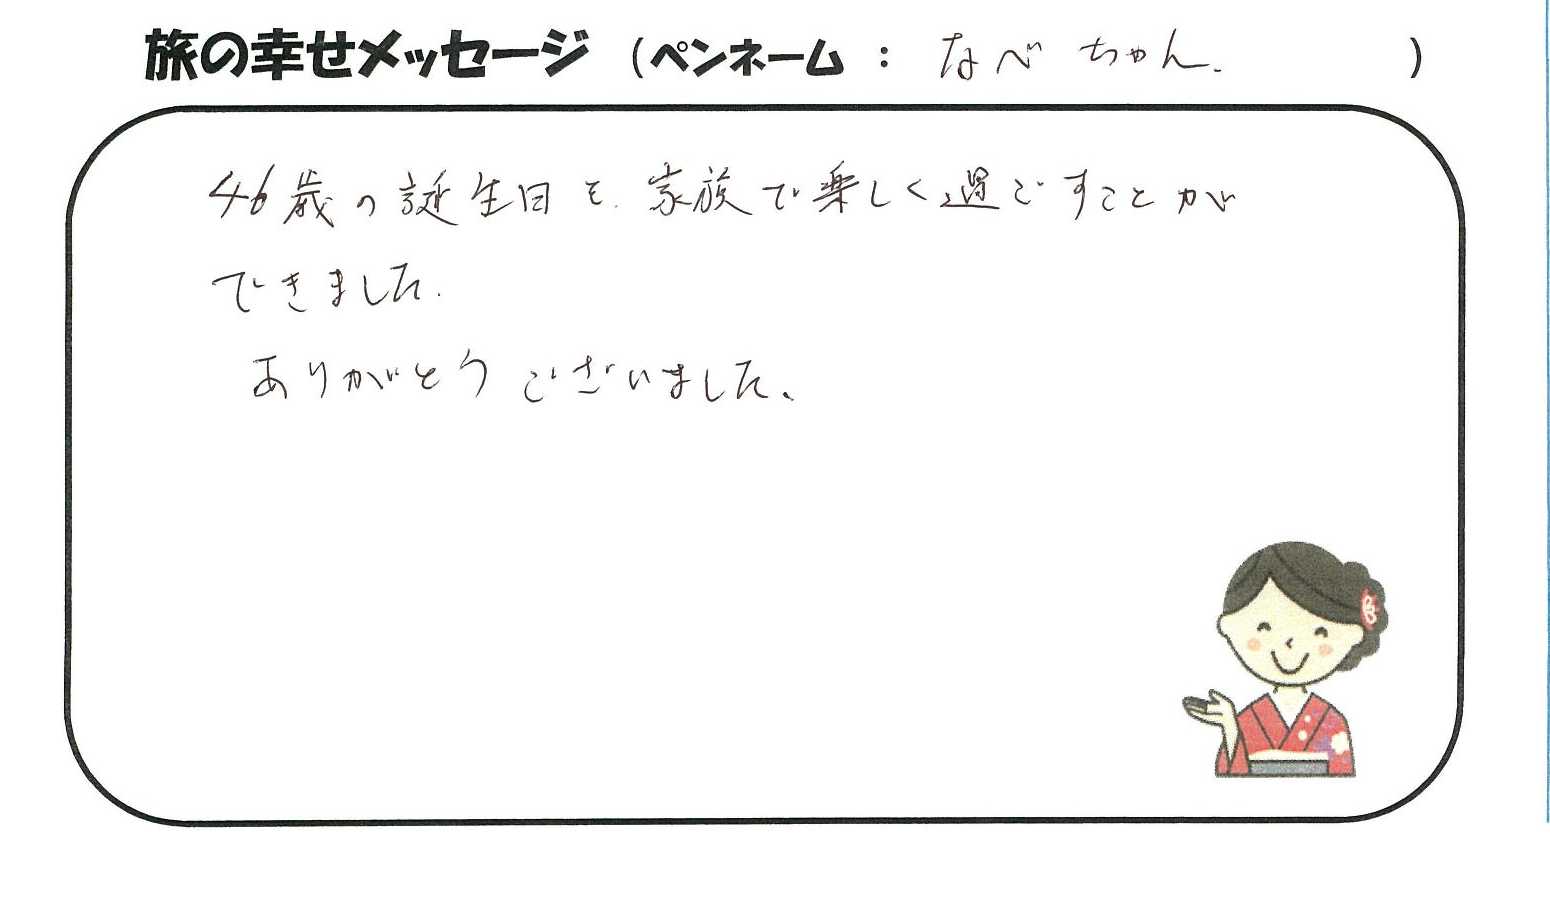 旅の幸せメッセージ (ペンネーム : なべちゃん. )
46歳の誕生日を、家族で楽しく過ごすことが
できました.
ありがとうございました、